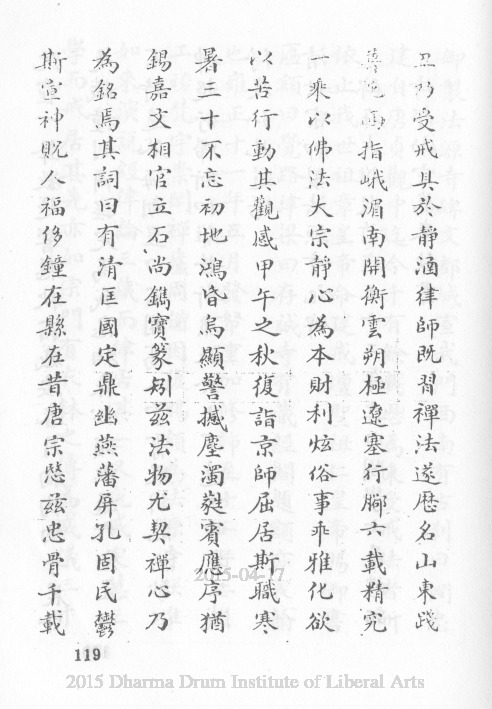 丑乃受戒具於靜涵律師既習禪法遂歷名山東踐
指峨湄南開衡雲朔極遼塞行腳六載精究
乘以佛法大宗靜心為本財利炫俗事乖雅化欲
以苦行動其觀感甲午之秋復詣京師屈居斯職寒
暑三十不忘初地鴻昏焉顯警撼塵濁蕤賓應序猶
錫嘉文相宦立石尚鐫寶篆矧茲法物尤契禪心乃
為銘焉其詞曰有清匡國定鼎幽燕藩屏孔固民
斯宣神貺人福侈鐘在縣在昔唐宗愍茲忠骨千載
119
2015-04-17
2015 Dharma Drum Institute of Liberal Arts